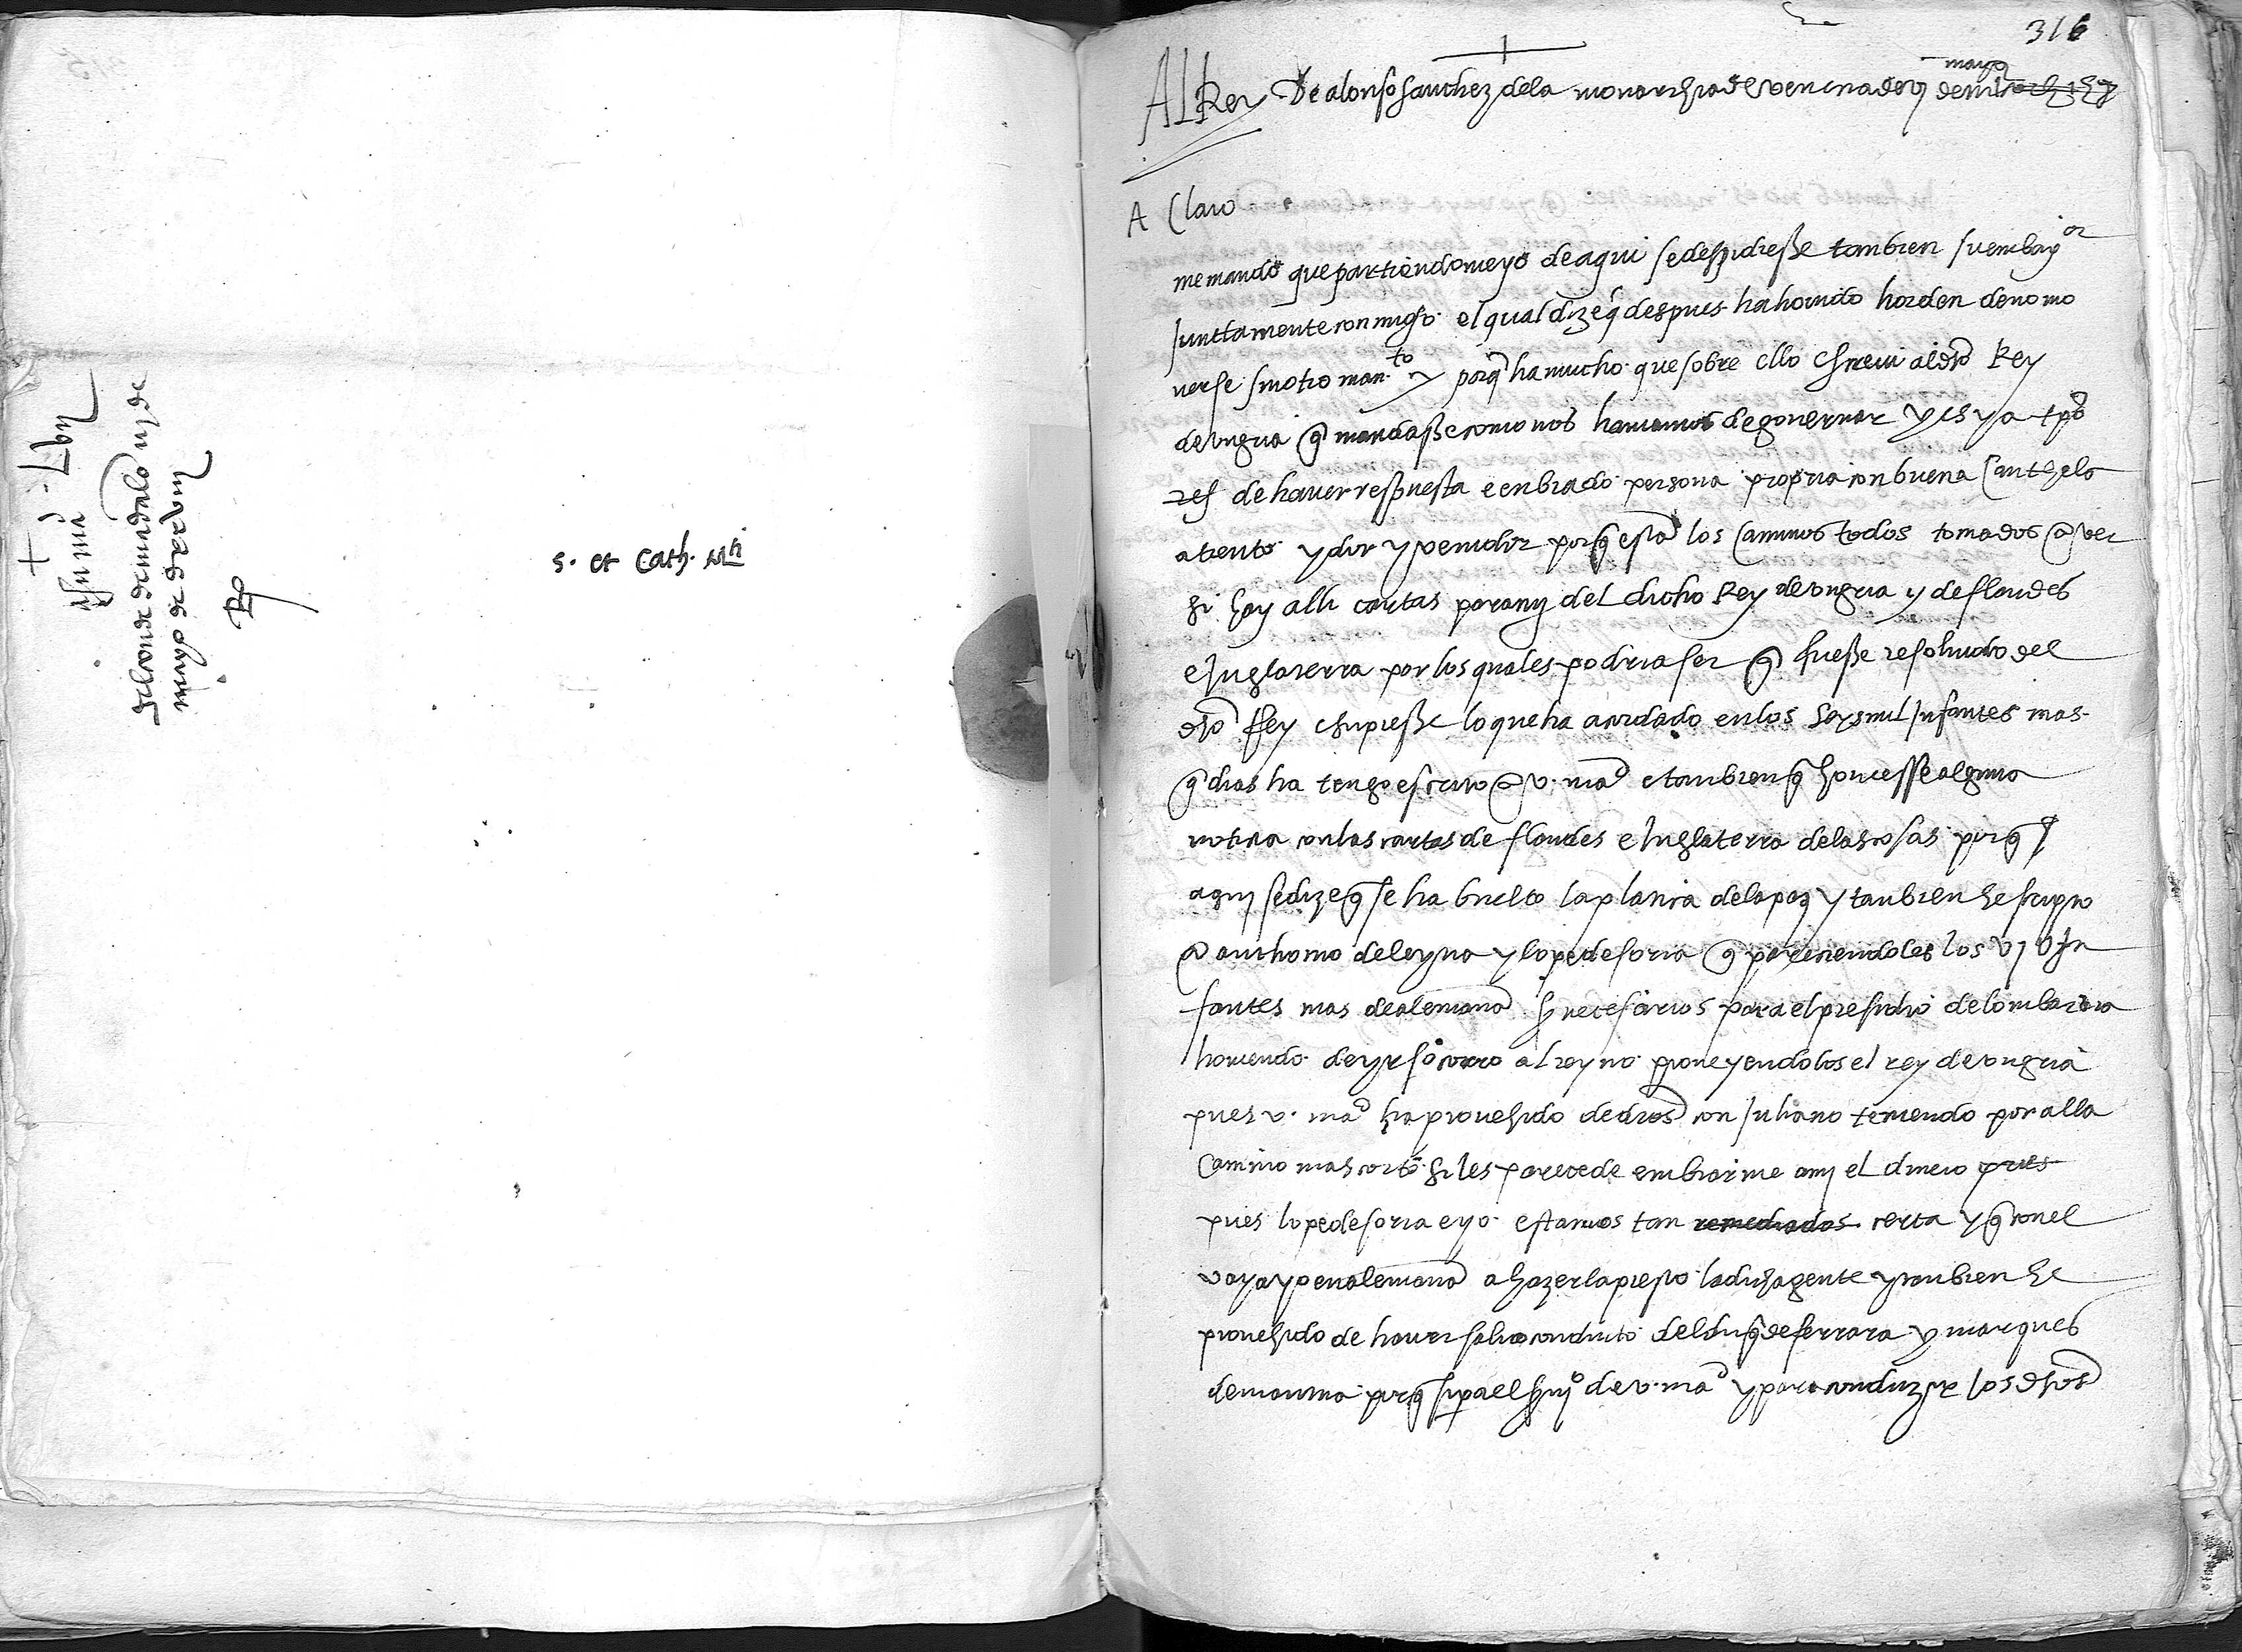 s. et Cath. Mti
del conde de mirandalo ult de
mayo de
Ro
316
Al Rey De alonso sanchez de la monarchia de venecia de vj de mayo
A Claro
me mando que partiendome yo de aqui se despidiesse tambien su embaxor
Junttamente conmigo el qual dize q despues ha havido horden de no mo
verse sin otro manto y porq ha mucho que sobre ello Escrevi al dho Rey
de ungria q mandasse como nos haviamos de governar y es ya tpo
de haver respuesta e enbiado persona propria con buena Cauthela
atiento y dor y venidor porq esta los Caminos todos tomados a ver
si hay alli cartas para my del dicho Rey de ungria y de flandes
e Inglaterra por los quales podria ser q fuesse resoluido del
dho Rey e supiesse lo que ha acordado en los seys mil Infantes mas
q dias ha tengo escrito a v. mad e tambien q hoviesse alguna
noticia con las cartas de flandes e Inglaterra de las cosas porq
aqui se dize q se ha buelto la platica de la paz y tanbien he scripto
a anthonio de leyva y lope de soria q pareciendoles los vj U In
fantes mas de alemana s necesarios para el presidio de lombardia
haviendo de yr socorro al reyno proveyendolos el rey de ungria
pues v. mad ha provehido de dros con Juliano teniendo por alla
Camino mas corto si les parece de embiarme a my el dinero pues
pues lope de soria e yo estamos tan remediados certa y q con el
vaya yo en alemana a hazer la presto la dicha gente y tanbien he
provehido de haver salvoconduto del duq de ferrara y marques
de mantua porq sipa el svjo de v. mad y para conduzir los dhos